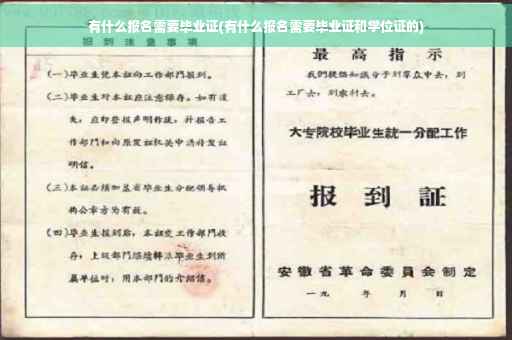 有什么报名需要毕业证(有什么报名需要毕业证和学位证的)
报到注意事项
(一)毕业生凭本证向工作部門报到。
(二)毕业生对本证应注意保存。如有遺
失，应即登报声明作废，并报告工
作部門和向原发证机关申請补发证
明信。
(三)本证必須加盖省毕业生分配領导机
构公章方为有效。
(四)毕业生报到后，本证交工作部門收
存，上级部門
单位时，用本部門的介绍信。
最高指示
我們提倡知識分子到羣众中去，到
工厂去，到农村去。
大专院校毕业生統一分配工作
报到証
安徽省革命委員会制定
一九 年 月 日